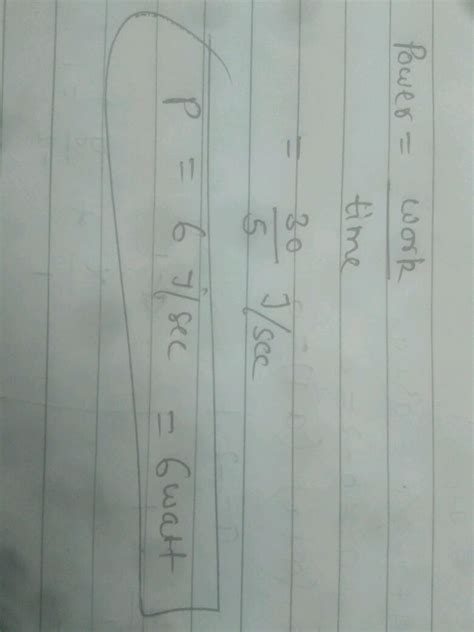 Power = work
time
= 30
5 J/sec
P = 6 J/sec = 6 watt